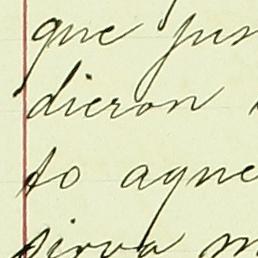 que jus
dieron
to aque
sirva m